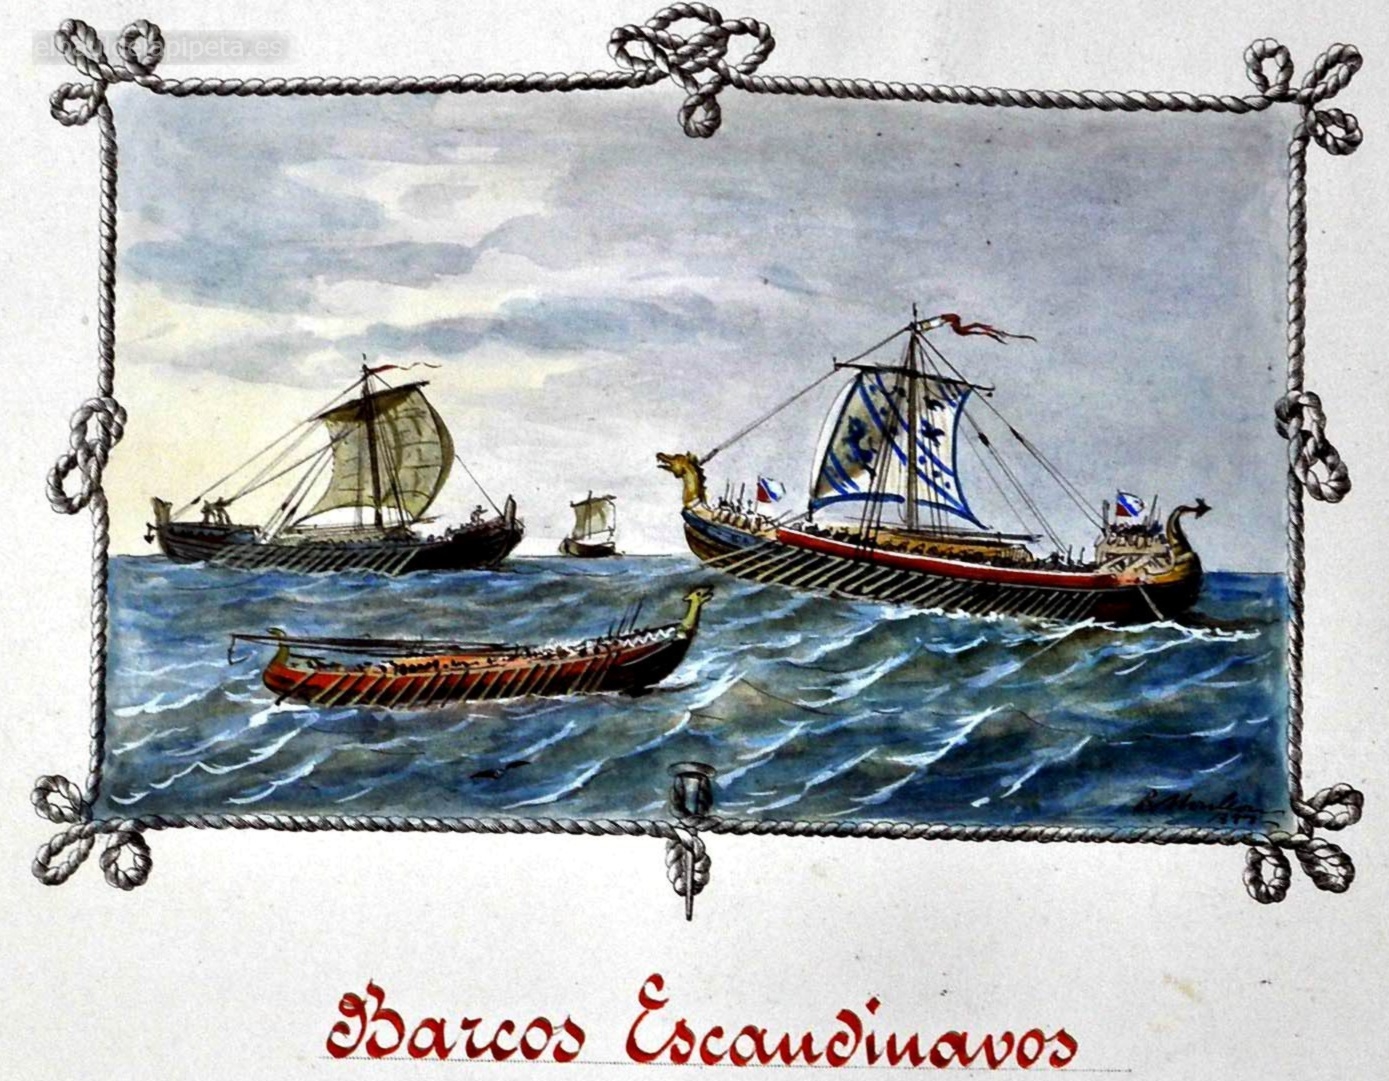 elbauldelapipeta.es
Barcos Escandinavos